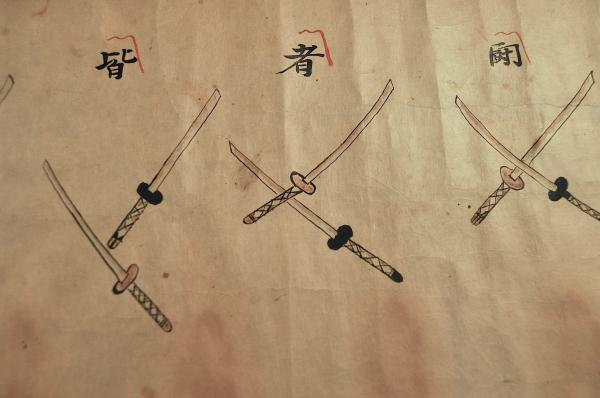 闘
者
皆